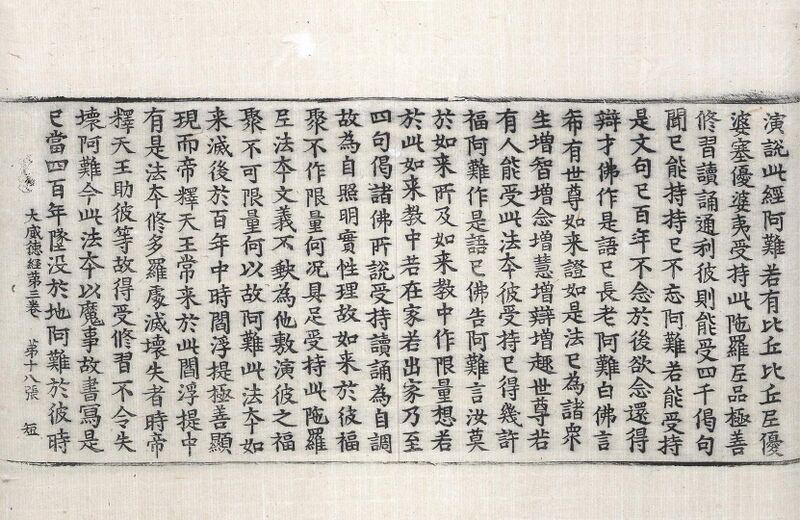 演說此經阿難若有比丘比丘尼優
婆塞優婆夷受持此陁羅尼品極善
修習讀誦通利彼則能受四千偈句
聞已能持持已不忘阿難若能受持
是文句已百年不念於後欲念還得
辯才佛作是語已長老阿難白佛言
希有世尊如来證如是法已為諸衆
生增智增念增慧增辯增趣世尊若
有人能受此法夲彼受持已得幾許
福阿難作是語已佛告阿難言汝莫
於如来所及如来教中作限量想若
於此如来教中若在家若出家乃至
四句偈諸佛所說受持讀誦為自調
故為自照明實性理故如来於彼福
聚不作限量何況具足受持此陁羅
尼法夲文義不缺為他敷演彼之福
聚不可限量何以故阿難此法夲如
来滅後於百年中時閻浮提極善顯
現而帝釋天王常来於此閻浮提中
有是法夲修多羅處滅壞失者時帝
釋天王助彼等故得受修習不令失
壞阿難今此法夲以魔事故書寫是
已當四百年墜没於地阿難於彼時
大威德経第三卷 第十八張 短